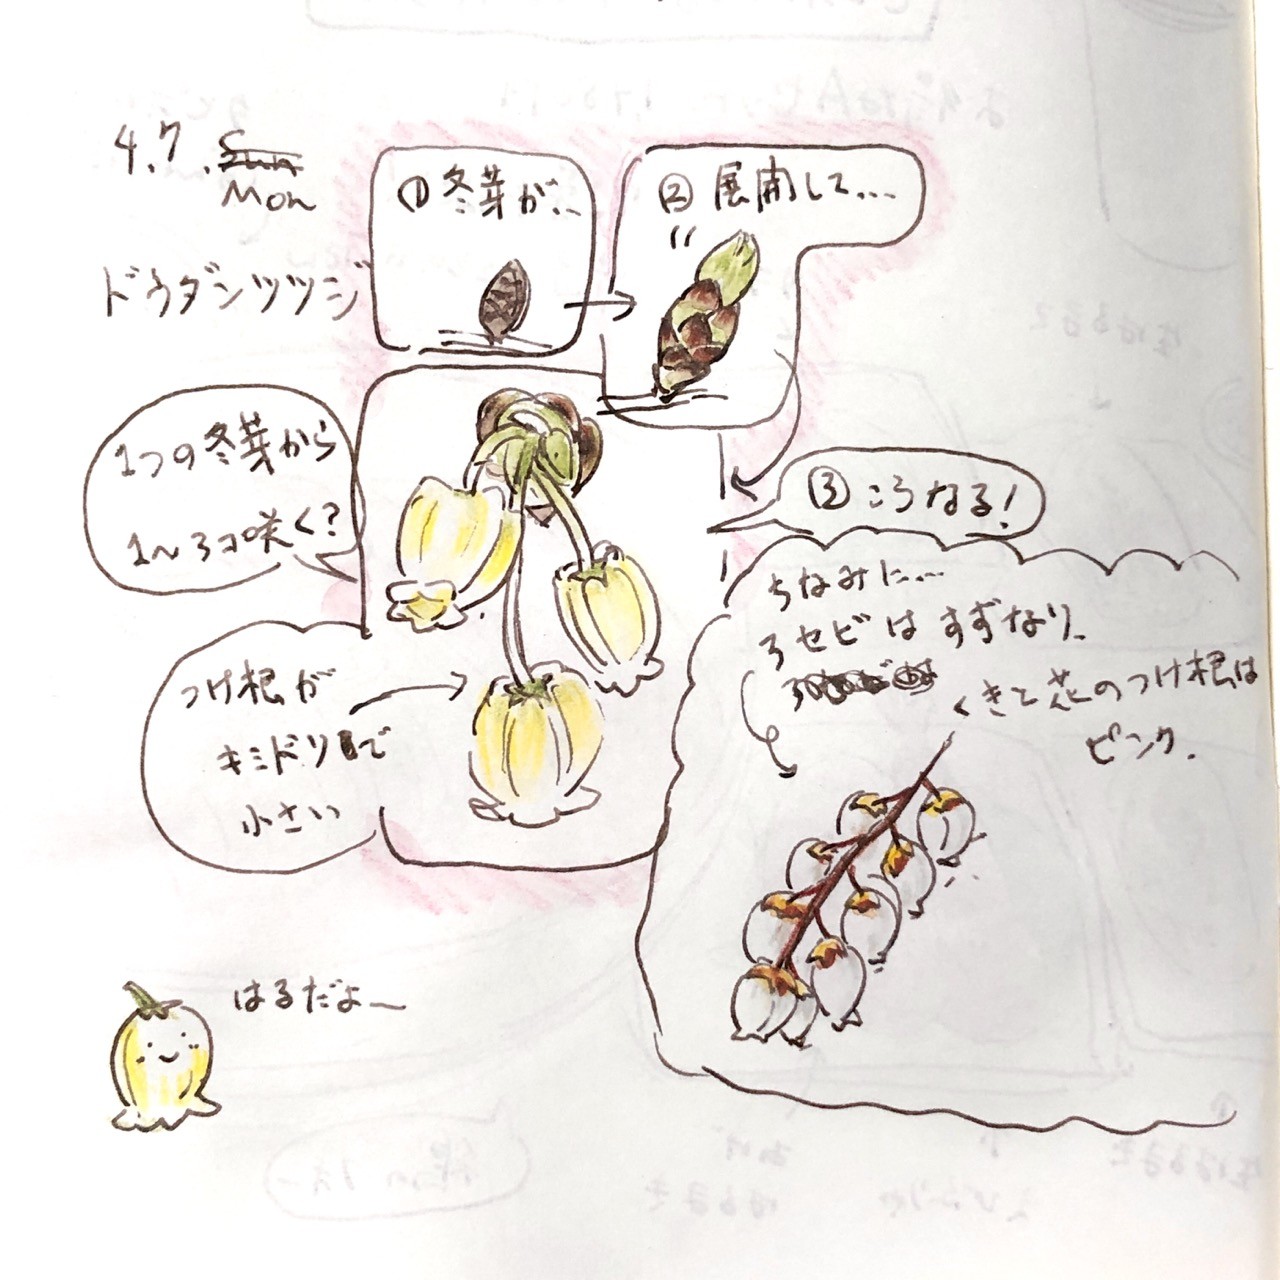 4.7. Sun
Mon
ドウダンツツジ
① 冬芽が...
② 展開して....
③ こうなる!
1つの冬芽から
1〜3コ咲く?
つけ根が
キミドリで
小さい
ちなみに...
アセビは すずなり。
くきと花のつけ根は
ピンク.
はるだよー